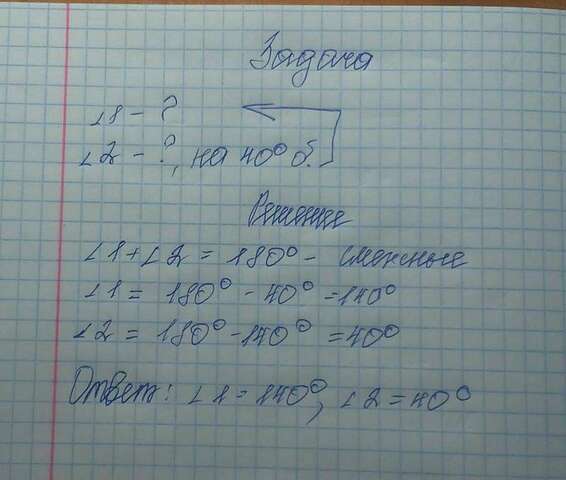 Задача
∠1 - ?
∠2 - ?, на 40° б.
Решение
∠1+∠2 = 180° - смежные
∠1 = 180° - 40° = 140°
∠2 = 180° - 140° = 40°
Ответ: ∠1 = 140°, ∠2 = 40°